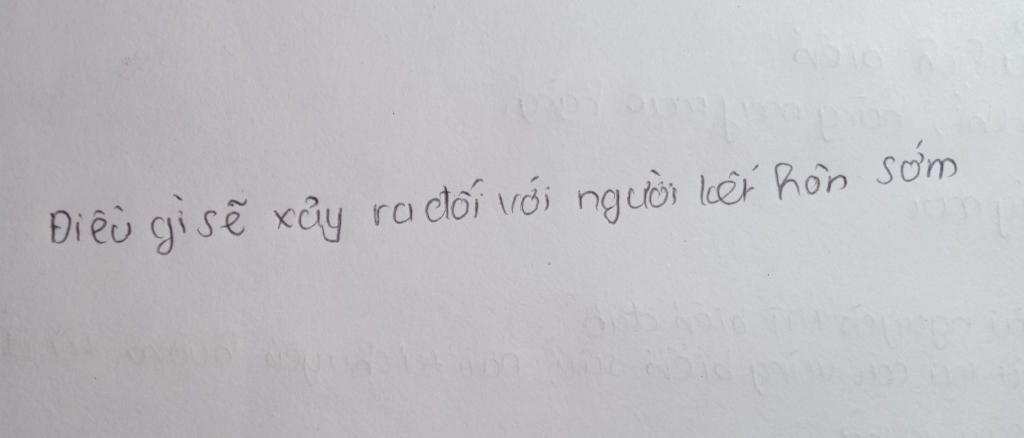 Điều gì sẽ xảy ra đối với người kết hôn sớm